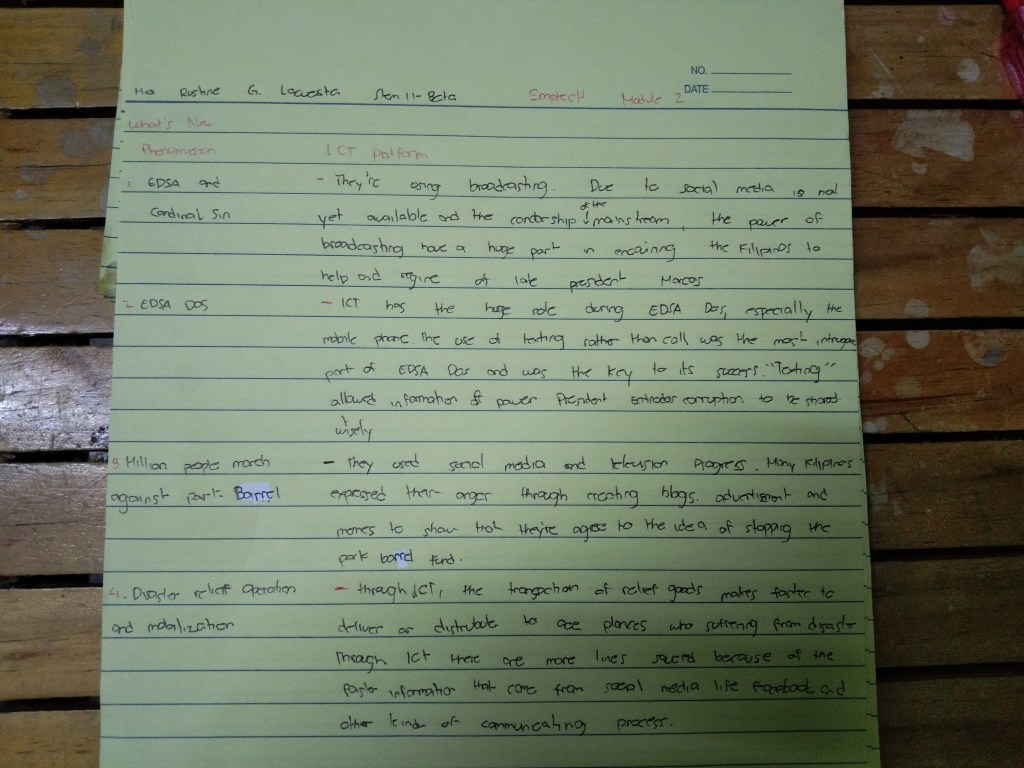 NO.
DATE
Ma Rushne G. Lacuesta Stem 11-Beta Emptech Module 2
What's New
Phenomenon ICT platform
1. EDSA and - They're using broadcasting. Due to social media is not
of the
Cardinal Sin yet available and the censorship ↓ mainstream, the power of
broadcasting have a huge part in the Filipinos to
help and of late president Marcos
2. EDSA DOS - ICT has the huge role during EDSA Dos, especially the
mobile phone. The use of texting rather than call was the most
part of EDSA Dos and was the key to its success. "Texting"
allowed information of power President corruption to be shared
wisely
3 Million people march - they used social media and television progress. Many Filipinos
against pork Barrel expressed their anger through creating blogs. advertisment and
memes to show that they're agree to the idea of stopping the
pork barrel fund.
4. Disaster relief operation - through ICT, the of relief goods makes faster to
and mobalization deliver or distribute to who suffering from disaster
Through ICT there are more lines because of the
faster information that came from social media life Facebook and
other kind of communicating process.